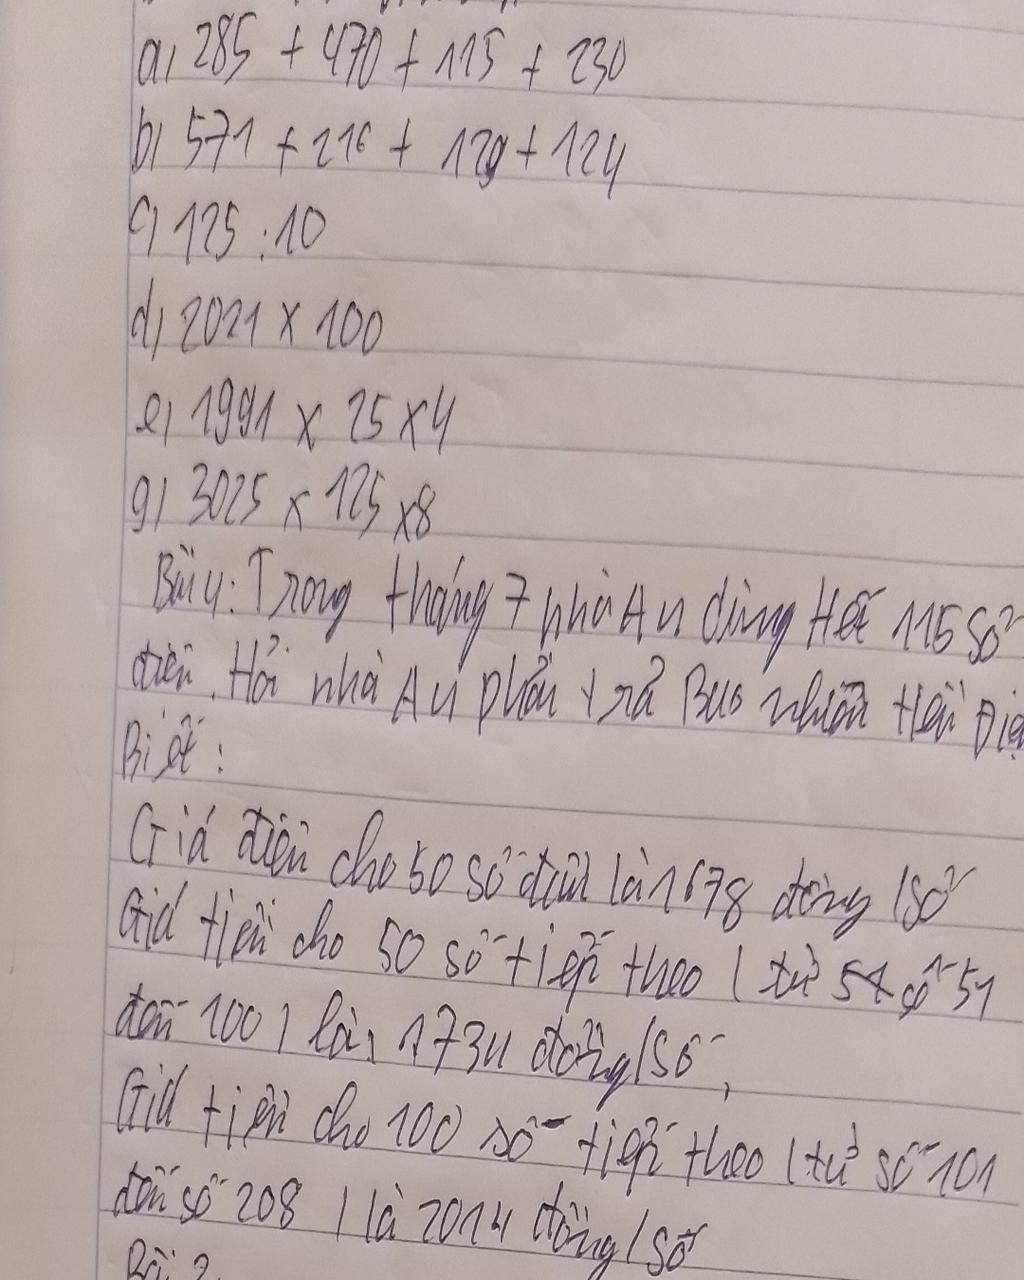 a) 285 + 470 + 115 + 230
b) 571 + 216 + 129 + 124
c) 125 : 10
d) 2021 x 100
e) 1991 x 25 x 4
g) 3025 x 125 x 8
Bài 4: Trong tháng 7 nhà An dùng Hết 115 số
điện. Hỏi nhà An phải trả Bao nhiêu tiền Điệ
Biết:
Giá điện cho 50 số đầu là 1678 đồng / số
Giá tiền cho 50 số tiếp theo ( từ số 51
đến 100 ) là, 1734 đồng / số,
Giá tiền cho 100 số tiếp theo ( từ số 101
đến số 208 ) là 2014 đồng / số
Bài